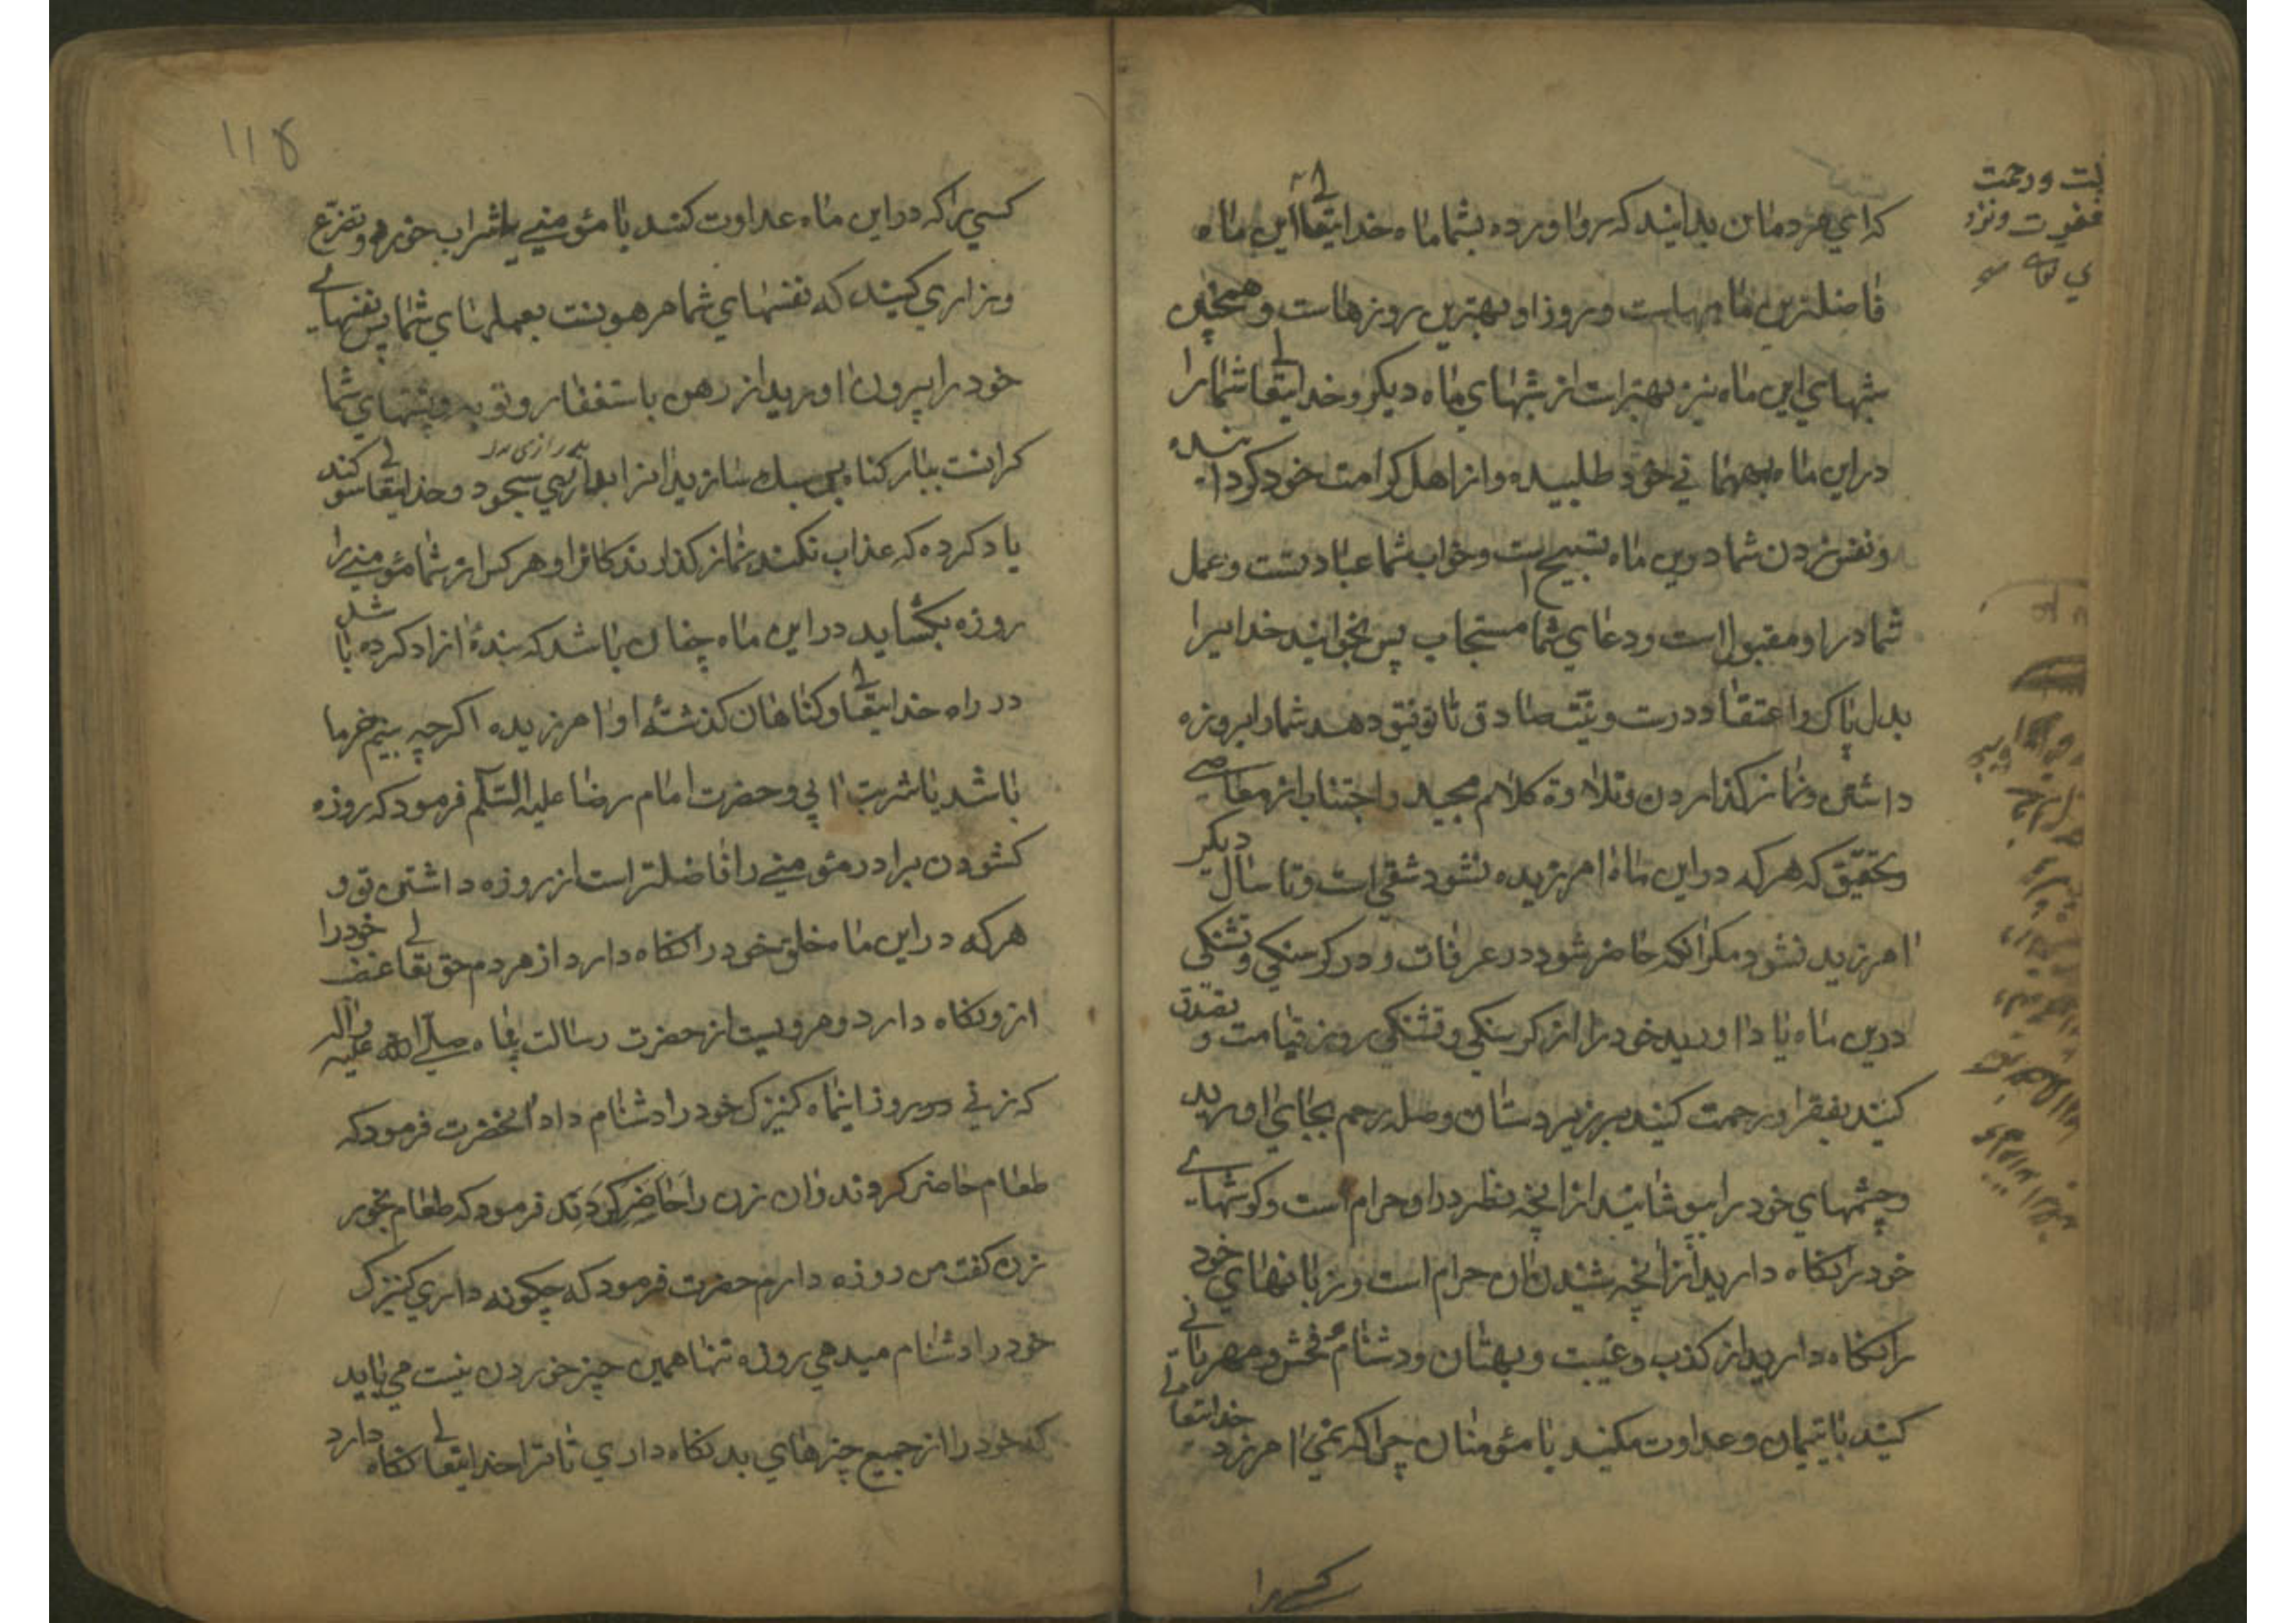 که ای مردمان بدانید که رو اورده بشما ماه خدایتعالی این ماه
فاضلترین ماهہاست و روز او بهترین روزهاست و همچنین
شبهای این ماه نیز بهتر است از شبهای ماه دیکر و خدایتعالی شما را
در این ماه بمهمانی خود طلبیده و از اهل کرامت خود کردا
ونفس زدن شما درین ماه تسبیح است و خواب شما عبادتست و عمل
شما در او مقبول است ودعای شما مستجاب پس بخوانید خدایرا
بدل پاک و اعتقاد درست و نیّت صادق تا توفیق دهد شما را بروزه
داشتن و نماز کذاردن و تلاوة کلام مجید و اجتناب از معاصی
بتحقیق که هر که در این ماه امرزیده نشود شقی است و تا سال دیکر
امرزیده نشود مکر انکه حاضر شود در عرفات و در کرسنکی و تشنکی
درین ماه یاد اورید خود را از کرسنکی و تشنکی روز قیامت و تصدق
کنید بفقرا و رحمت کنید بر زیردستان وصله رحم بجای اورید
وچشمهای خود را بپوشانید از انچه نظر در او حرام است و کوشهای
خود را نکاه دارید از انچه شنیدن ان حرام است و زبانهای خود
را نکاه دارید از کذب و غیبت و بهتان و دشنام و فحش و مهربانی
کنید با یتیمان و عداوت مکنید با مؤمنان چرا که نمی امرزد خدایتعالی
کسی را
کسی را که در این ماه عداوت کند با مؤمنی یا شراب خورد و تضرّع
و زاری کنید که نفسهای شما مرهونست بعملهای شما پس نفسهای
خود را بیرون اورید از رهن باستغفار و توبه و پشتهای شما
کرانست ببار کناه پس سبک سازید انرا بدرازی سجود و خدایتعالی سوکند
یاد کرده که عذاب نکند نماز کذارندکانرا و هر کس از شما مؤمنی را
روزه بکشاید در این ماه چنان باشد که بندهٔ ازاد کرده باشد
در راه خدایتعالی و کناهان کذشتهٔ او امرزیده اکرچه بنیم خرما
باشد یا شربت ابی و حضرت امام رضا علیه السّلم فرمود که روزه
کشودن برادر مؤمنی را فاضلتر است از روزه داشتن تو و
هر که در این ماه خلق خود را نکاه دارد از مردم حق تعالی غضب خود را
از و نکاه دارد و مرویست از حضرت رسالت پناه صلّی الله علیه واله
که زنی در روز اینماه کنیزک خود را دشنام داد انحضرت فرمود که
طعام حاضر کردند وان زن را حاضر کردند فرمود که طعام بخور
زن کفت من روزه دارم حضرت فرمود که چکونه داری کنیزک
خود را دشنام میدهی روزه تنها همین چیز خوردن نیست می باید
که خود را از جمیع چیزهای بد نکاه داری تا ترا خدایتعالی نکاه دارد